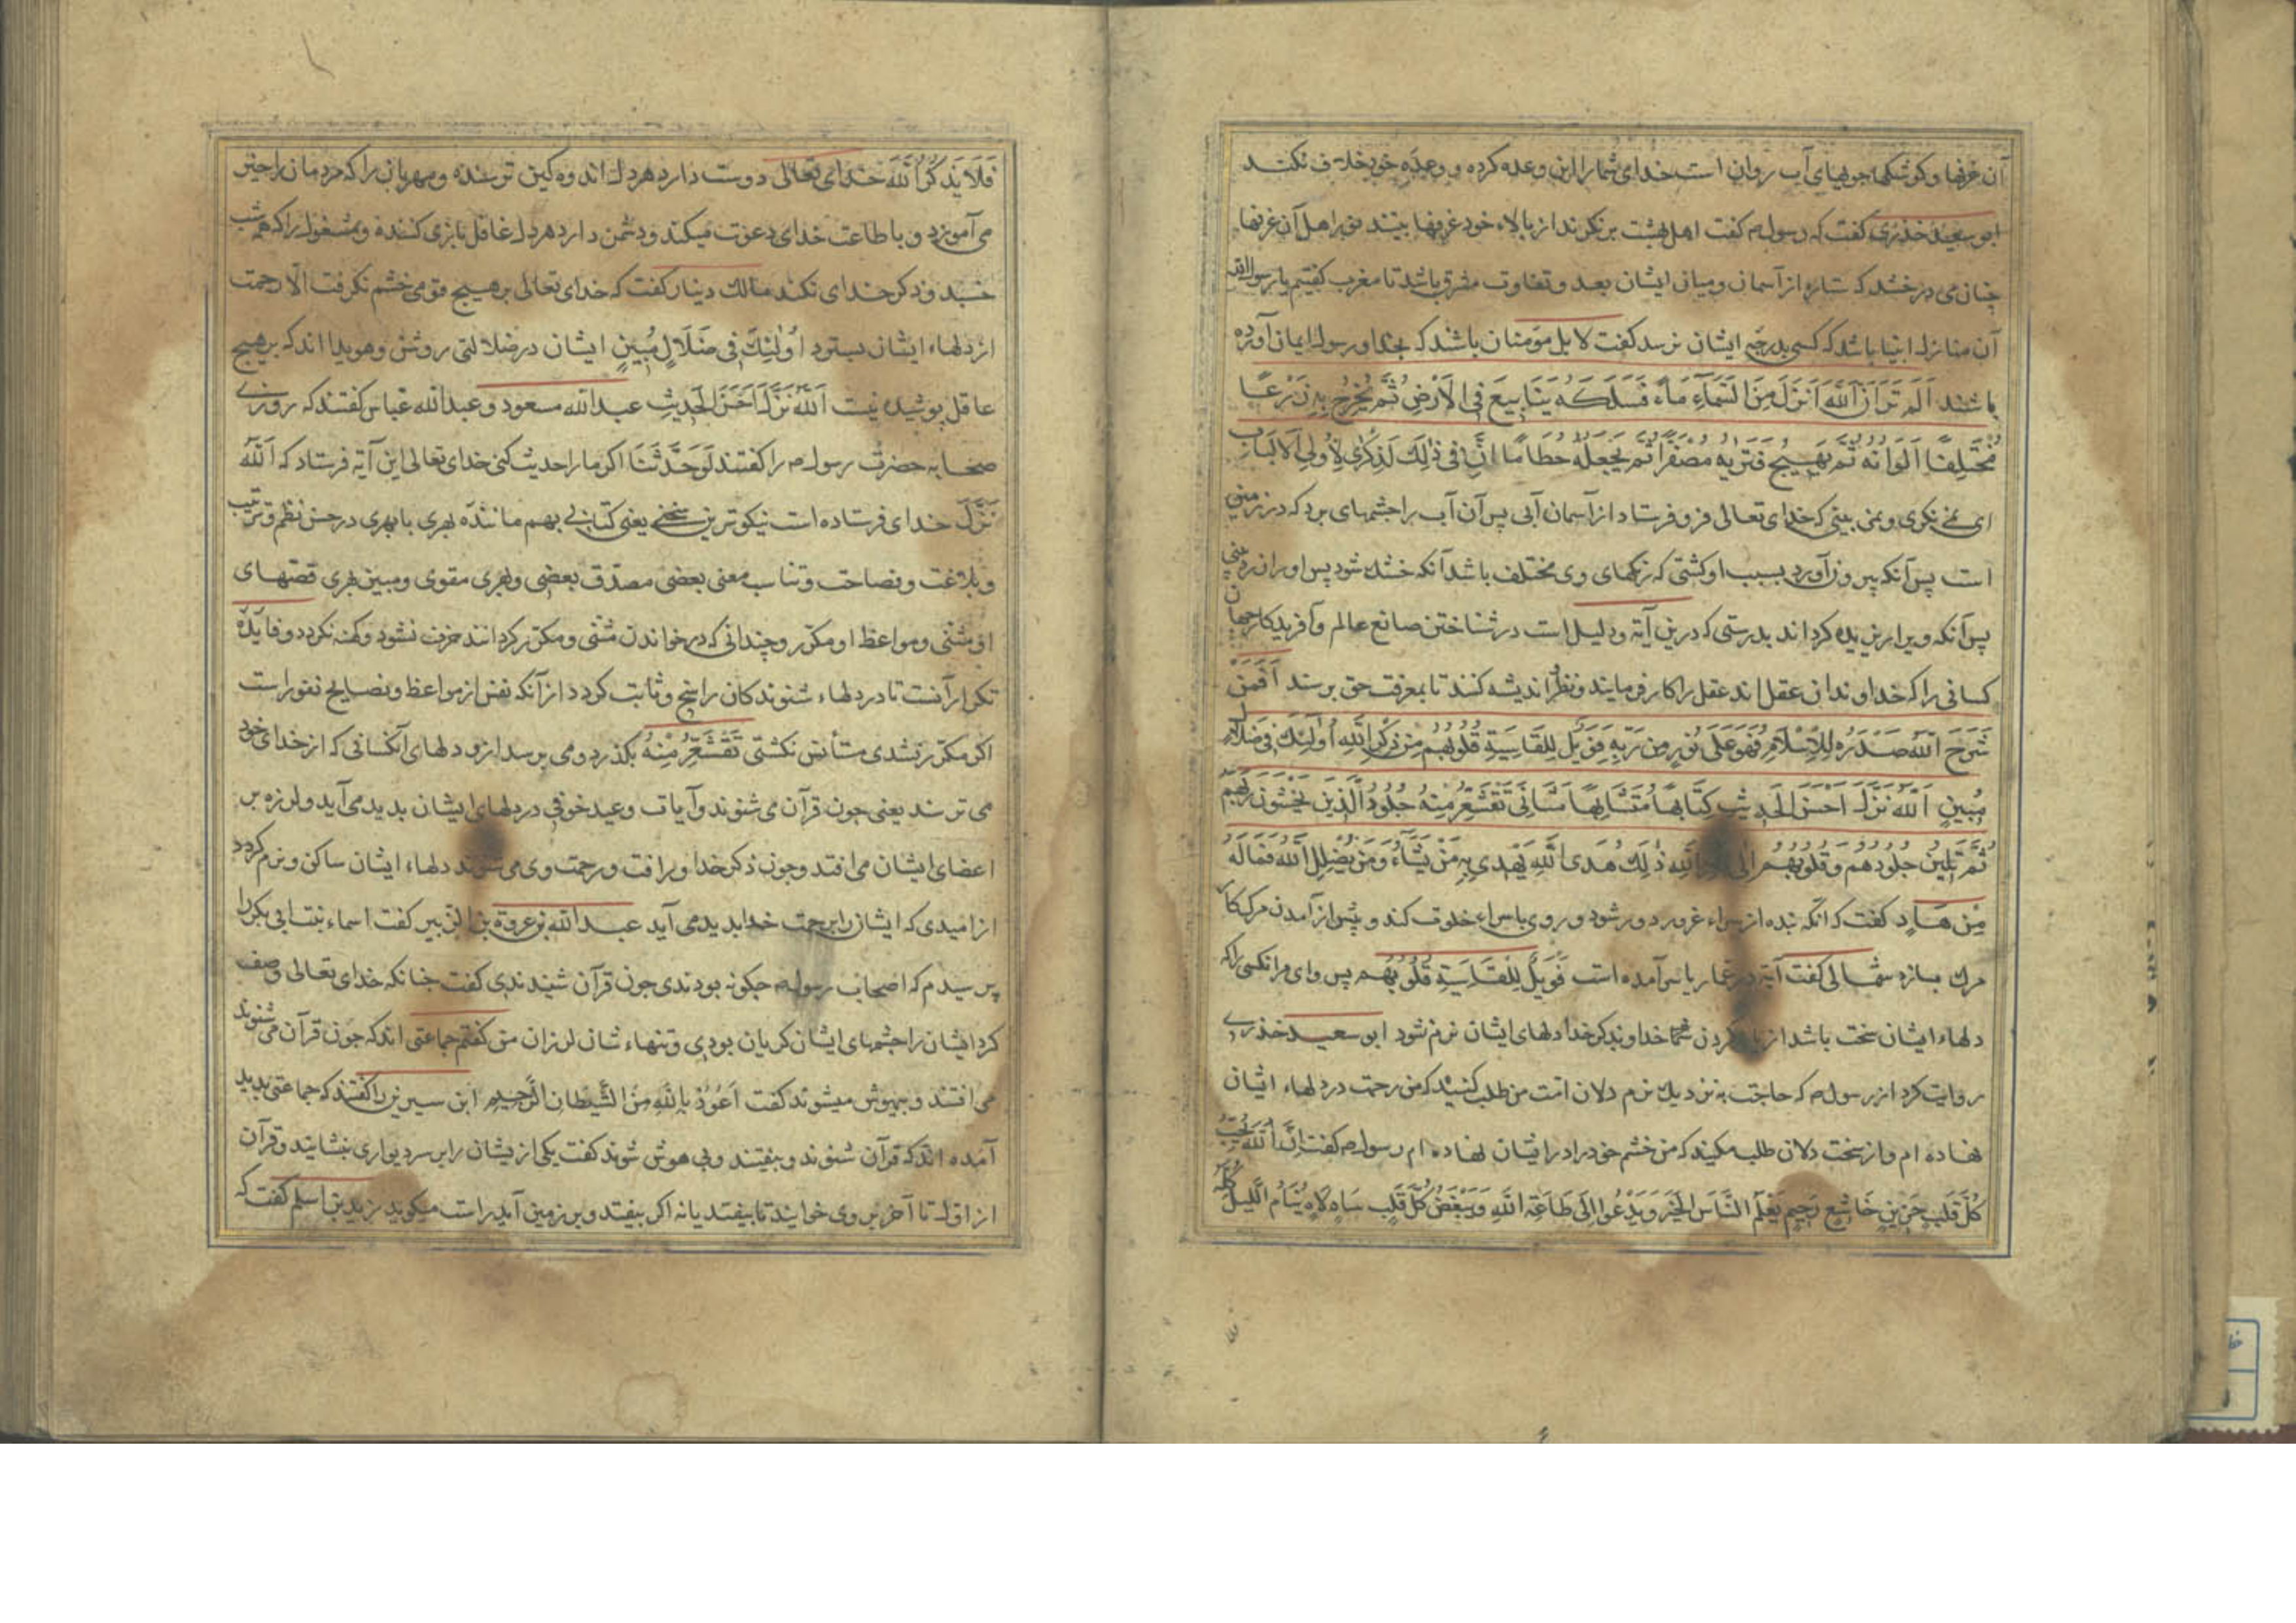 آن غرفها و کوشکها جویهای آب روان است خدای شما را این وعده کرده و وعده خود خلاف نکند
ابو سعید خذری گفت که رسول م کفت اهل بهشت بر نکرند از بالاء خود غرفها بینند اهل آن غرفها
چنان می درخشد که ستاره از آسمان و میان ایشان بعد و تفاوت مشرق باشد تا مغرب کفتیم یا رسول الله
آن منازل انبیا باشد که کسی بدرجه ایشان نرسد کفت لا بل مؤمنان باشند که بخدا و رسول ایمان آورده
باشند اَلَم تَرَ اَنَّ اللّٰهَ اَنزَلَ مِنَ السَّمَآءِ مَآءً فَسَلَكَهُ يَنَابِيعَ فِى الْاَرْضِ ثُمَّ يُخْرِجُ بِهِ زَرْعًا
مُخْتَلِفًا اَلْوَانُهُ ثُمَّ يَهِيجُ فَتَرٰيهُ مُصْفَرًّا ثُمَّ يَجْعَلُهُ حُطَامًا اِنَّ فِى ذٰلِكَ لَذِكْرٰى لِاُولِى الْاَلْبَابِ
ای نمی نکری و نمی بینی که خدای تعالی فرو فرستاد از آسمان آبی پس آن آب را بچشمهای برد که در زمین
است پس آنکه بیرون آورد بسبب او کشتی که رنکهای وی مختلف باشد آنکه خشک شود پس او را زرد بینی
پس آنکه ویرا ریزیده کرداند بدرستی که درین آیة و دلیل است در شناختن صانع عالم و آفریدکار جهان
کسانی را که خداوندان عقل اند عقل را کار فرمایند و نظر و اندیشه کنند تا بمعرفت حق برسند اَفَمَنْ
شَرَحَ اللّٰهُ صَدْرَهُ لِلْاِسْلَامِ فَهُوَ عَلٰى نُورٍ مِن رَبِّهِ فَوَيْلٌ لِلْقَاسِيَةِ قُلُوبُهُم مِن ذِكْرِ اللّٰهِ اُولٰئِكَ فِى ضَلَالٍ
مُبِينٍ اَللّٰهُ نَزَّلَ اَحْسَنَ الْحَدِيثِ كِتَابًا مُتَشَابِهًا مَثَانِىَ تَقْشَعِرُّ مِنْهُ جُلُودُ الَّذِينَ يَخْشَوْنَ رَبَّهُمْ
ثُمَّ تَلِينُ جُلُودُهُم وَقُلُوبُهُم اِلٰى ذِكْرِ اللّٰهِ ذٰلِكَ هُدَى اللّٰهِ يَهْدِى بِهِ مَنْ يَشَآءُ وَمَنْ يُضْلِلِ اللّٰهُ فَمَا لَهُ
مِنْ هَادٍ کفت که آنکه بنده از سراء غرور دور شود و روی با سراء خلود کند و پیش از آمدن مرک کار
مرک بسازد کفت آیة در عمار یاسر آمده است فَوَيْلٌ لِلْقَاسِيَةِ قُلُوبُهُم پس وای مر آنکسی را که
دلهاء ایشان سخت باشد از یاد کردن خداوند کر خدا دلهای ایشان نرم نشود ابو سعید خذری
روایت کرد از رسول م که حاجت به نزدیک نرم دلان امت من طلب کنید که من رحمت در دلهاء ایشان
نهاده ام و از سخت دلان طلب مکنید که من خشم خود را در ایشان نهاده ام رسول م کفت اِنَّ اللّٰهَ يُحِبُّ
كُلَّ قَلْبٍ حَزِينٍ خَاشِعٍ رَحِيمٍ يُعَلِّمُ النَّاسَ الْخَيْرَ وَيَدْعُوا اِلٰى طَاعَةِ اللّٰهِ وَيُبْغِضُ كُلَّ قَلْبٍ سَاهٍ لَاهٍ يَنَامُ اللَّيْلَ كُلَّهُ
فَلَا يَذْكُرُ اللّٰهَ خدای تعالی دوست دارد هر دل اندوهکین ترسنده و مهربان را که مردمان را خیر
می آموزد و با طاعت خدای دعوت میکند و دشمن دارد هر دل غافل بازی کننده و مشغول را که همه شب
خسبد و ذکر خدای نکند مالک دینار کفت که خدای تعالی بر هیچ قومی خشم نکرفت الّا رحمت
از دلهاء ایشان بستود اُولٰئِكَ فِى ضَلَالٍ مُبِينٍ ایشان در ضلالتی روشن و هویدا اند که بر هیچ
عاقل پوشیده نیست اَللّٰهُ نَزَّلَ اَحْسَنَ الْحَدِيثِ عبد الله مسعود و عبد الله عباس کفتند که روزی
صحابه حضرت رسول م را کفتند لَوحَدَّثْتَنَا اکر ما را حدیث کنی خدای تعالی این آیة فرستاد که اَللّٰهُ
نَزَّلَ خدای فرستاده است نیکوترین سخنی یعنی کتابی بهم مانندَه بهری با بهری در حسن نظم و ترتیب
و بلاغت و فصاحت و تناسب معنی بعضی مصدّق بعضی و بهری مقوی و مبین بهری قصتهای
او مثنی و مواعظ او مکرّر و چندانی که در خواندن مثنی و مکرّر کردانند حرف نشود و کهنه نکردد و فایدَه
تکرار آنست تا در دلهاء شنوندکان راسخ و ثابت کردد از آنکه نفس از مواعظ و نصایح نفور است
اکر مکرّر نشدی مستأنس نکشتی تَقْشَعِرُّ مِنْهُ بلکذرد و می برسد ازو دلهای آنکسانی که از خدای خود
می ترسند یعنی چون قرآن می شنوند و آیات وعید خوفی در دلهای ایشان بدید می آید و لرزه بر
اعضای ایشان می افتد و چون ذکر خدا و رافت و رحمت وی می شنوند دلهاء ایشان ساکن و نرم کردد
از امیدی که ایشان را برحمت خدا بدید می آید عبد الله بن عروة بن الزبیر کفت اسماء بنت ابی بکر را
پرسیدم که اصحاب رسول م چکونه بودندی چون قرآن شنیدندی کفت چنانکه خدای تعالی وصف
کرد ایشان را چشمهای ایشان کریان بودی و تنهاء شان لرزان من کفتم جماعتی اند که چون قرآن می شنوند
می افتند و بیهوش میشوند کفت اَعُوذُ بِاللّٰهِ مِنَ الشَّيْطَانِ الرَّجِيمِ ابن سیرین را کفتند که جماعتی بدید
آمده اند که قرآن شنوند و بیفتند و بی هوش شوند کفت یکی از یشان را بر سر دیواری بنشانید و قرآن
از اوّل تا آخر بر وی خوانید تا بیفتد یا نه اکر بیفتد و بر زمین آید راست میکوید زید بن اسلم کفت که